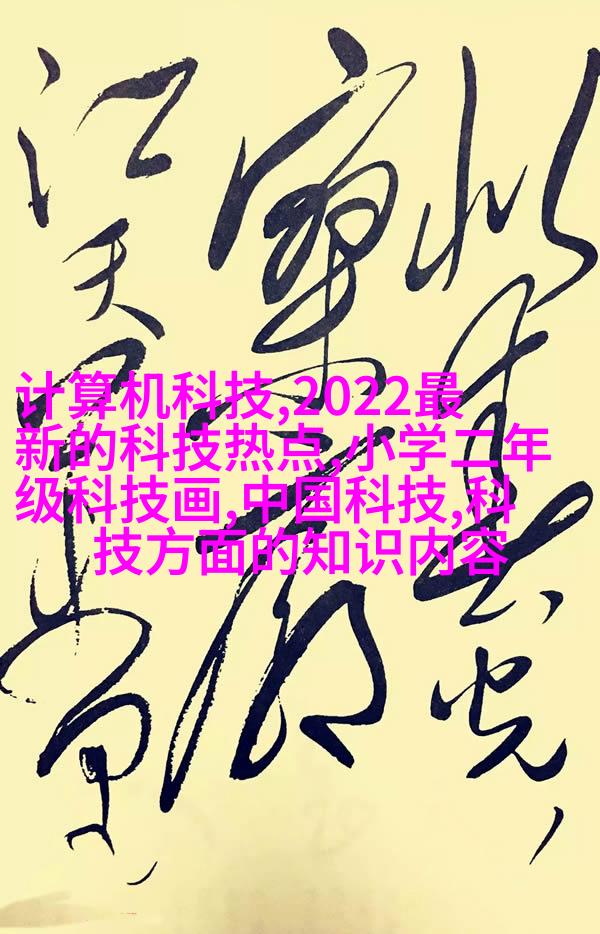 似春光，
寥廓
江天
计算机科技,2022最
新的科技热点,小学二年
级科技画,中国科技,科
技方面的知识内容